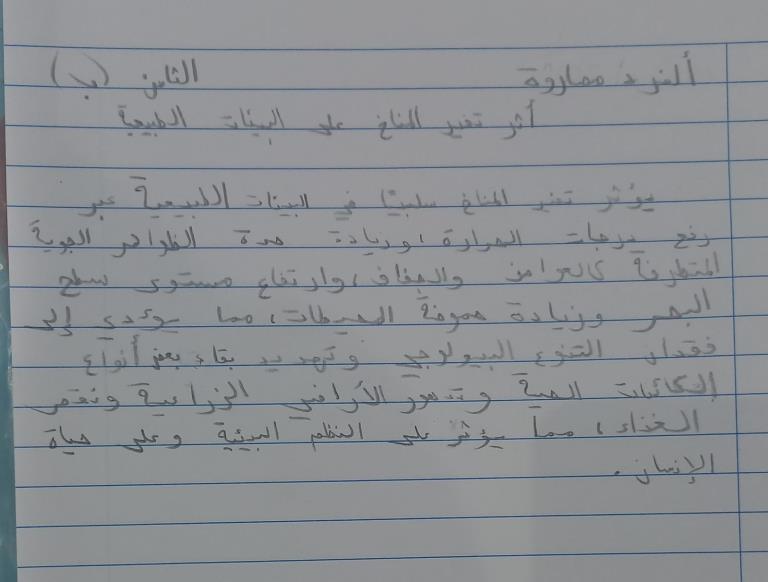 ألفرد مماروة الثامن (ب)
أثر تغير المناخ على البيئات الطبيعية
يؤثر تغير المناخ سلبيًا في البيئات الطبيعية عبر
رفع درجات الحرارة، وزيادة حدة الظواهر الجوية
المتطرفة كالعواصف والجفاف، وارتفاع مستوى سطح
البحر وزيادة حموضة المحيطات، مما يؤدي إلى
فقدان التنوع البيولوجي وتهديد بقاء بعض أنواع
الكائنات الحية وتدهور الأراضي الزراعية ونقص
الغذاء، مما يؤثر على النظم البيئية وعلى حياة
الإنسان.